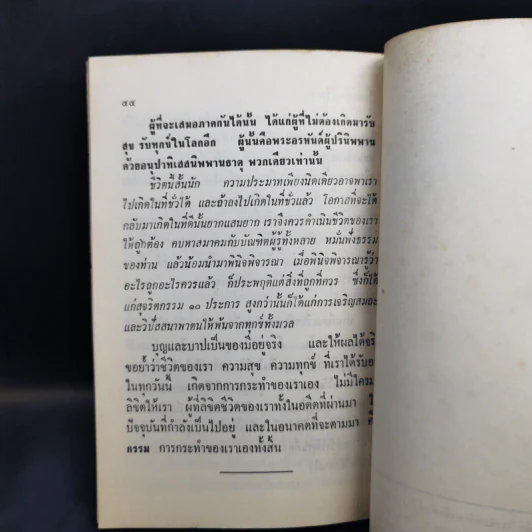 ๔๔
ผู้ที่จะเสมอภาคกันได้นั้น ได้แก่ผู้ที่ไม่ต้องเกิดมารับ
สุข รับทุกข์ในโลกอีก ผู้นั้นคือพระอรหันต์ผู้ปรินิพพาน
ด้วยอนุปาทิเสสนิพพานธาตุ พวกเดียวเท่านั้น
ชีวิตนี้สั้นนัก ความประมาทเพียงนิดเดียวอาจพาเรา
ไปเกิดในที่ชั่วได้ และถ้าลงไปเกิดในที่ชั่วแล้ว โอกาสที่จะได้
กลับมาเกิดในที่ดีนั้นยากแสนยาก เราจึงควรดำเนินชีวิตของเรา
ให้ถูกต้อง คบหาสมาคมกับบัณฑิตผู้รู้ทั้งหลาย หมั่นฟังธรรม
ของท่าน แล้วน้อมนำมาพินิจพิจารณา เมื่อพินิจพิจารณารู้ว่า
อะไรถูกอะไรควรแล้ว ก็ประพฤติแต่สิ่งที่ถูกที่ควร ซึ่งก็ได้
แก่สุจริตกรรม ๑๐ ประการ สูงกว่านั้นก็ได้แก่การเจริญสมถะ
และวิปัสสนาพาตนให้พ้นจากทุกข์ทั้งมวล
บุญและบาปเป็นของมีอยู่จริง และให้ผลได้จริง
ขอย้ำว่าชีวิตของเรา ความสุข ความทุกข์ ที่เราได้รับอยู่
ในทุกวันนี้ เกิดจากการกระทำของเราเอง ไม่มีใครมา
ลิขิตให้เรา ผู้ที่ลิขิตชีวิตของเราทั้งในอดีตที่ผ่านมา ใน
ปัจจุบันที่กำลังเป็นไปอยู่ และในอนาคตที่จะตามมา คือ
กรรม การกระทำของเราเองทั้งสิ้น